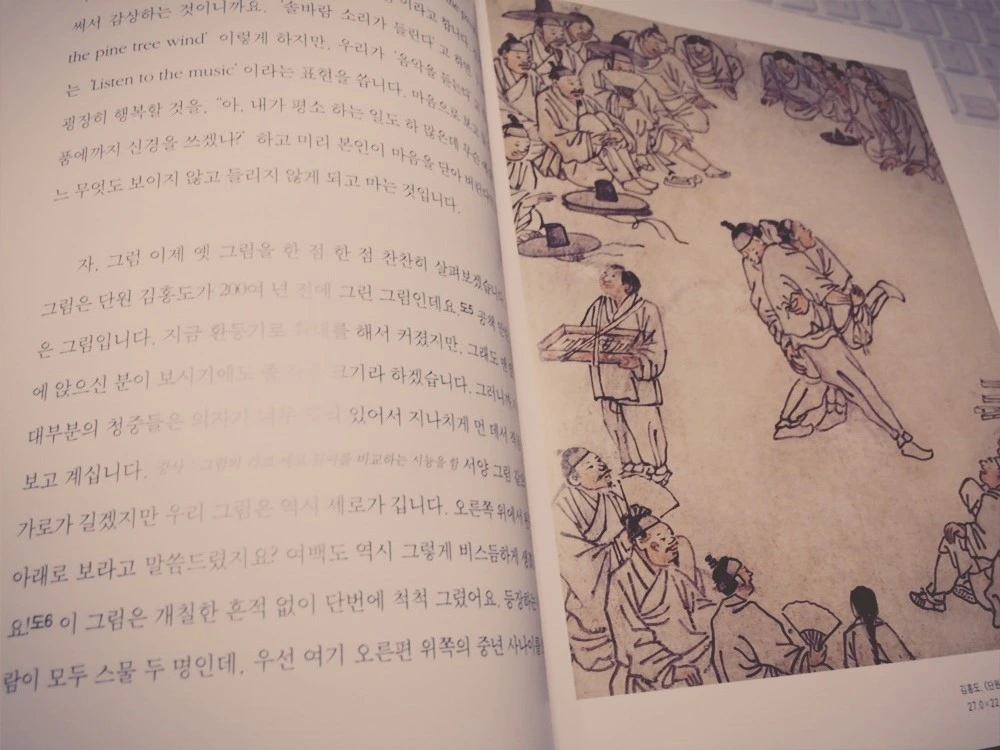 써서 감상하는 것이니까요. '솔바람 소리가 들린다'고 하면
the pine tree wind' 이렇게 하지만, 우리가 '음악을 듣는다'
는 'Listen to the music'이라는 표현을 씁니다. 마음으로 보고
굉장히 행복할 것을, "아, 내가 평소 하는 일도 하 많은데 무슨
품에까지 신경을 쓰겠나?" 하고 미리 본인이 마음을 닫아 버린다
느 무엇도 보이지 않고 들리지 않게 되고 마는 것입니다.
자, 그럼 이제 옛 그림을 한 점 한 점 찬찬히 살펴보겠습니
그림은 단원 김홍도가 200여 년 전에 그린 그림인데요,도5 공책
은 그림입니다. 지금 환등기로 확대를 해서 커졌지만, 그래도 맨
에 앉으신 분이 보시기에도 좀 크기라 하겠습니다. 그러니까
대부분의 청중들은 의자가 너무 있어서 지나치게 먼 데서
보고 계십니다. 비교하는 시늉을 함 서양 그림
가로가 길겠지만 우리 그림은 역시 세로가 깁니다. 오른쪽 위에서
아래로 보라고 말씀드렸지요? 여백도 역시 그렇게 비스듬하게
요!도6 이 그림은 개칠한 흔적 없이 단번에 척척 그렸어요. 등장하는
람이 모두 스물 두 명인데, 우선 여기 오른편 위쪽의 중년 사나이를
김홍도, 《단원
27.0×22.